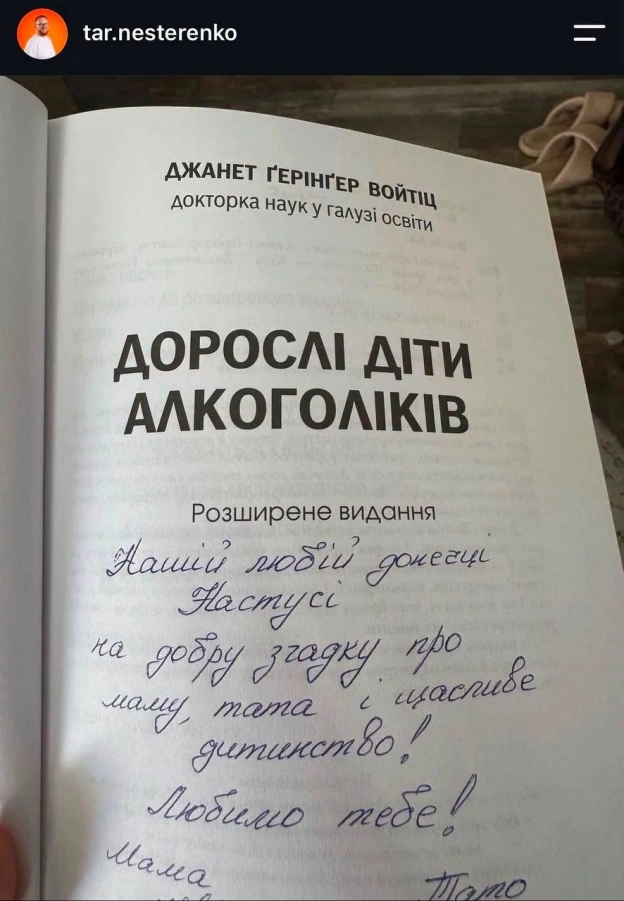 tar.nesterenko
ДЖАНЕТ ҐЕРІНҐЕР ВОЙТІЦ
докторка наук у галузі освіти
ДОРОСЛІ ДІТИ
АЛКОГОЛІКІВ
Розширене видання
Нашій любій донечці
Настусі
на добру згадку про
маму, тата і щасливе
дитинство!
Любимо тебе!
Мама
Тато